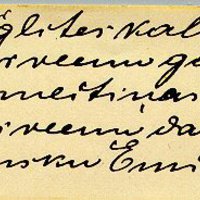 glites kal
r veenu ga
mestiņas
s veenu da
nsku Emi